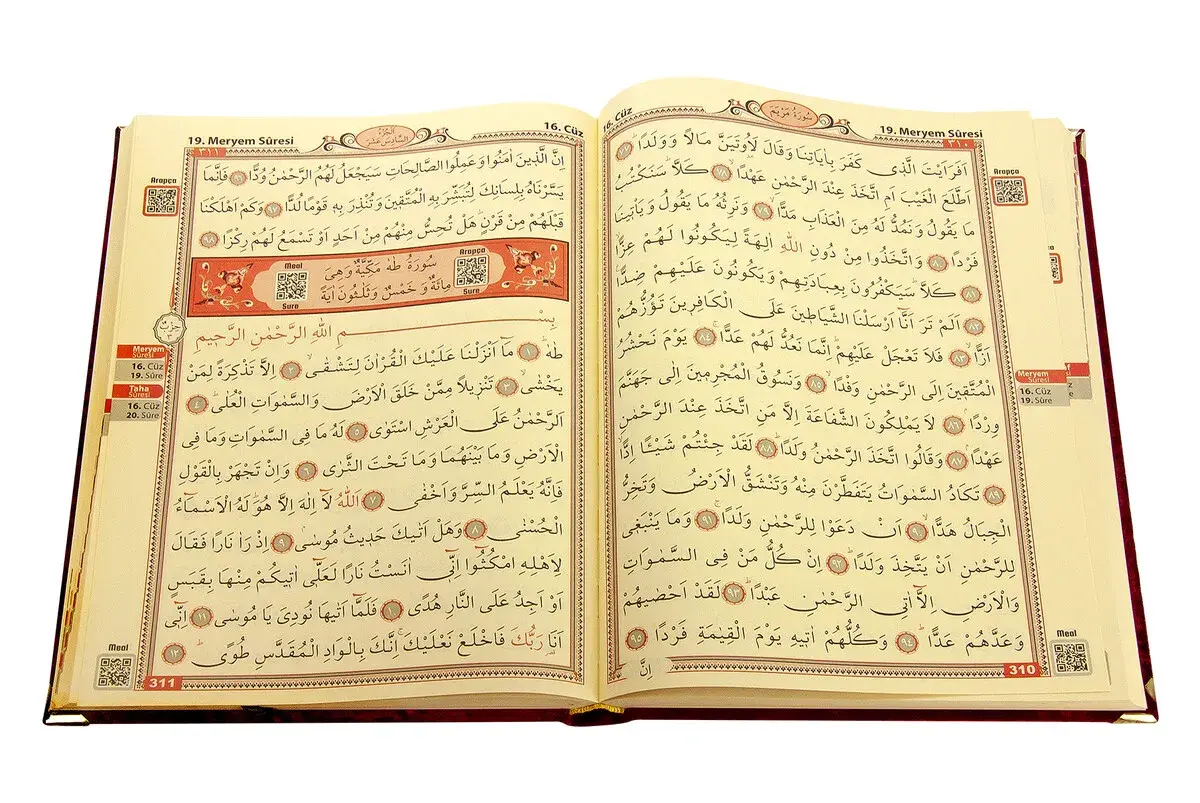 16. Cüz
سُورَةُ مَرْيَمَ
19. Meryem Sûresi
٣١٠
اَفَرَاَيْتَ الَّذ۪ى كَفَرَ بِاٰيَاتِنَا وَقَالَ لَاُو۫تَيَنَّ مَالًا وَوَلَدًا ﴿٧٧﴾
اَطَّلَعَ الْغَيْبَ اَمِ اتَّخَذَ عِنْدَ الرَّحْمٰنِ عَهْدًا ﴿٧٨﴾ كَلَّا سَنَكْتُبُ
مَا يَقُولُ وَنَمُدُّ لَهُ مِنَ الْعَذَابِ مَدًّا ﴿٧٩﴾ وَنَرِثُهُ مَا يَقُولُ وَيَأْت۪ينَا
فَرْدًا ﴿٨٠﴾ وَاتَّخَذُوا مِنْ دُونِ اللّٰهِ اٰلِهَةً لِيَكُونُوا لَهُمْ عِزًّا
﴿٨١﴾ كَلَّا سَيَكْفُرُونَ بِعِبَادَتِهِمْ وَيَكُونُونَ عَلَيْهِمْ ضِدًّا
﴿٨٢﴾ اَلَمْ تَرَ اَنَّا اَرْسَلْنَا الشَّيَاط۪ينَ عَلَى الْكَافِر۪ينَ تَؤُزُّهُمْ
اَزًّا ﴿٨٣﴾ فَلَا تَعْجَلْ عَلَيْهِمْ اِنَّمَا نَعُدُّ لَهُمْ عَدًّا ﴿٨٤﴾ يَوْمَ نَحْشُرُ
الْمُتَّق۪ينَ اِلَى الرَّحْمٰنِ وَفْدًا ﴿٨٥﴾ وَنَسُوقُ الْمُجْرِم۪ينَ اِلٰى جَهَنَّمَ
وِرْدًا ﴿٨٦﴾ لَا يَمْلِكُونَ الشَّفَاعَةَ اِلَّا مَنِ اتَّخَذَ عِنْدَ الرَّحْمٰنِ
عَهْدًا ﴿٨٧﴾ وَقَالُوا اتَّخَذَ الرَّحْمٰنُ وَلَدًا ﴿٨٨﴾ لَقَدْ جِئْتُمْ شَيْـًٔا اِدًّا
﴿٨٩﴾ تَكَادُ السَّمٰوَاتُ يَتَفَطَّرْنَ مِنْهُ وَتَنْشَقُّ الْاَرْضُ وَتَخِرُّ
الْجِبَالُ هَدًّا ﴿٩٠﴾ اَنْ دَعَوْا لِلرَّحْمٰنِ وَلَدًا ﴿٩١﴾ وَمَا يَنْبَغ۪ى
لِلرَّحْمٰنِ اَنْ يَتَّخِذَ وَلَدًا ﴿٩٢﴾ اِنْ كُلُّ مَنْ فِى السَّمٰوَاتِ
وَالْاَرْضِ اِلَّٓا اٰتِى الرَّحْمٰنِ عَبْدًا ﴿٩٣﴾ لَقَدْ اَحْصٰيهُمْ
وَعَدَّهُمْ عَدًّا ﴿٩٤﴾ وَكُلُّهُمْ اٰت۪يهِ يَوْمَ الْقِيٰمَةِ فَرْدًا ﴿٩٥﴾
اِنَّ
310
Arapça
Meryem
Sûresi
16. Cüz
19. Sûre
Meal
19. Meryem Sûresi
اَلْجُزْءُ
السَّادِسُ عَشَرَ
16. Cüz
٣١١
اِنَّ الَّذ۪ينَ اٰمَنُوا وَعَمِلُوا الصَّالِحَاتِ سَيَجْعَلُ لَهُمُ الرَّحْمٰنُ وُدًّا ﴿٩٦﴾ فَاِنَّمَا
يَسَّرْنَاهُ بِلِسَانِكَ لِتُبَشِّرَ بِهِ الْمُتَّق۪ينَ وَتُنْذِرَ بِه۪ قَوْمًا لُدًّا ﴿٩٧﴾ وَكَمْ اَهْلَكْنَا
قَبْلَهُمْ مِنْ قَرْنٍ هَلْ تُحِسُّ مِنْهُمْ مِنْ اَحَدٍ اَوْ تَسْمَعُ لَهُمْ رِكْزًا ﴿٩٨﴾
Arapça
Sure
سُورَةُ طٰهٰ مَكِّيَّةٌ وَهِىَ
مِائَةٌ وَ خَمْسٌ وَثَلٰثُونَ اٰيَةً
Meal
Sure
بِسْمِ اللّٰهِ الرَّحْمٰنِ الرَّح۪يمِ
طٰهٰ ﴿١﴾ مَٓا اَنْزَلْنَا عَلَيْكَ الْقُرْاٰنَ لِتَشْقٰى ﴿٢﴾ اِلَّا تَذْكِرَةً لِمَنْ
يَخْشٰى ﴿٣﴾ تَنْز۪يلًا مِمَّنْ خَلَقَ الْاَرْضَ وَالسَّمٰوَاتِ الْعُلٰى ﴿٤﴾
اَلرَّحْمٰنُ عَلَى الْعَرْشِ اسْتَوٰى ﴿٥﴾ لَهُ مَا فِى السَّمٰوَاتِ وَمَا فِى
الْاَرْضِ وَمَا بَيْنَهُمَا وَمَا تَحْتَ الثَّرٰى ﴿٦﴾ وَاِنْ تَجْهَرْ بِالْقَوْلِ
فَاِنَّهُ يَعْلَمُ السِّرَّ وَاَخْفٰى ﴿٧﴾ اَللّٰهُ لَٓا اِلٰهَ اِلَّا هُوَ لَهُ الْاَسْمَٓاءُ
الْحُسْنٰى ﴿٨﴾ وَهَلْ اَتٰيكَ حَد۪يثُ مُوسٰى ﴿٩﴾ اِذْ رَاٰ نَارًا فَقَالَ
لِاَهْلِهِ امْكُثُٓوا اِنّ۪ٓى اٰنَسْتُ نَارًا لَعَلّ۪ٓى اٰت۪يكُمْ مِنْهَا بِقَبَسٍ
اَوْ اَجِدُ عَلَى النَّارِ هُدًى ﴿١٠﴾ فَلَمَّٓا اَتٰيهَا نُودِىَ يَا مُوسٰى ﴿١١﴾ اِنّ۪ٓى
اَنَا۬ رَبُّكَ فَاخْلَعْ نَعْلَيْكَ اِنَّكَ بِالْوَادِ الْمُقَدَّسِ طُوًى ﴿١٢﴾
311
Arapça
حِزْبٌ
Meryem
Sûresi
16. Cüz
19. Sûre
Taha
Sûresi
16. Cüz
20. Sûre
Meal